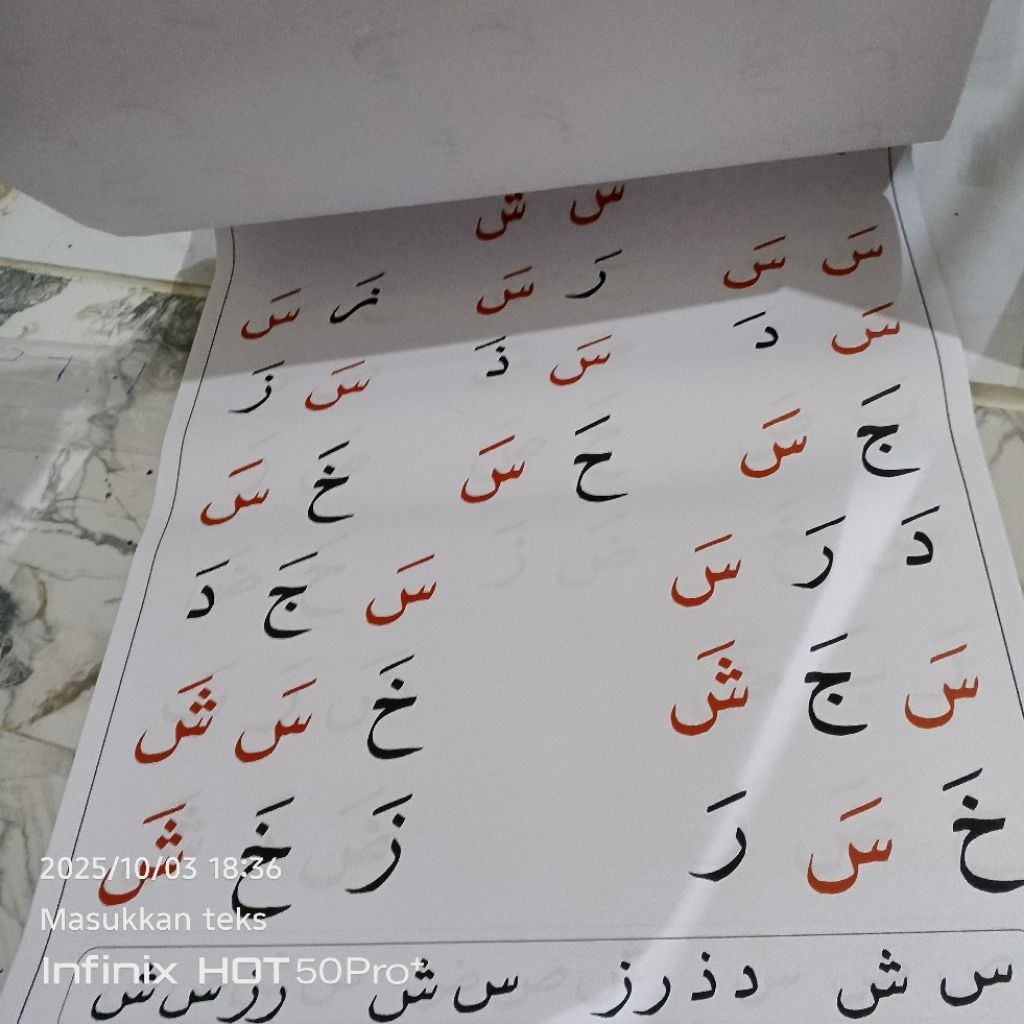 س ش
سَ سَ رَ سَ زَ سَ
سَ دَ سَ ذَ سَ زَ
جَ سَ حَ سَ خَ سَ
دَ رَ سَ سَ جَ دَ
سَ جَ شَ خَ سَ شَ
خَ سَ رَ زَ خَ شَ
س ش د ذ ر ز س ش ر ز س ش
2025/10/03 18:36
Masukkan teks
Infinix HOT 50 Pro+